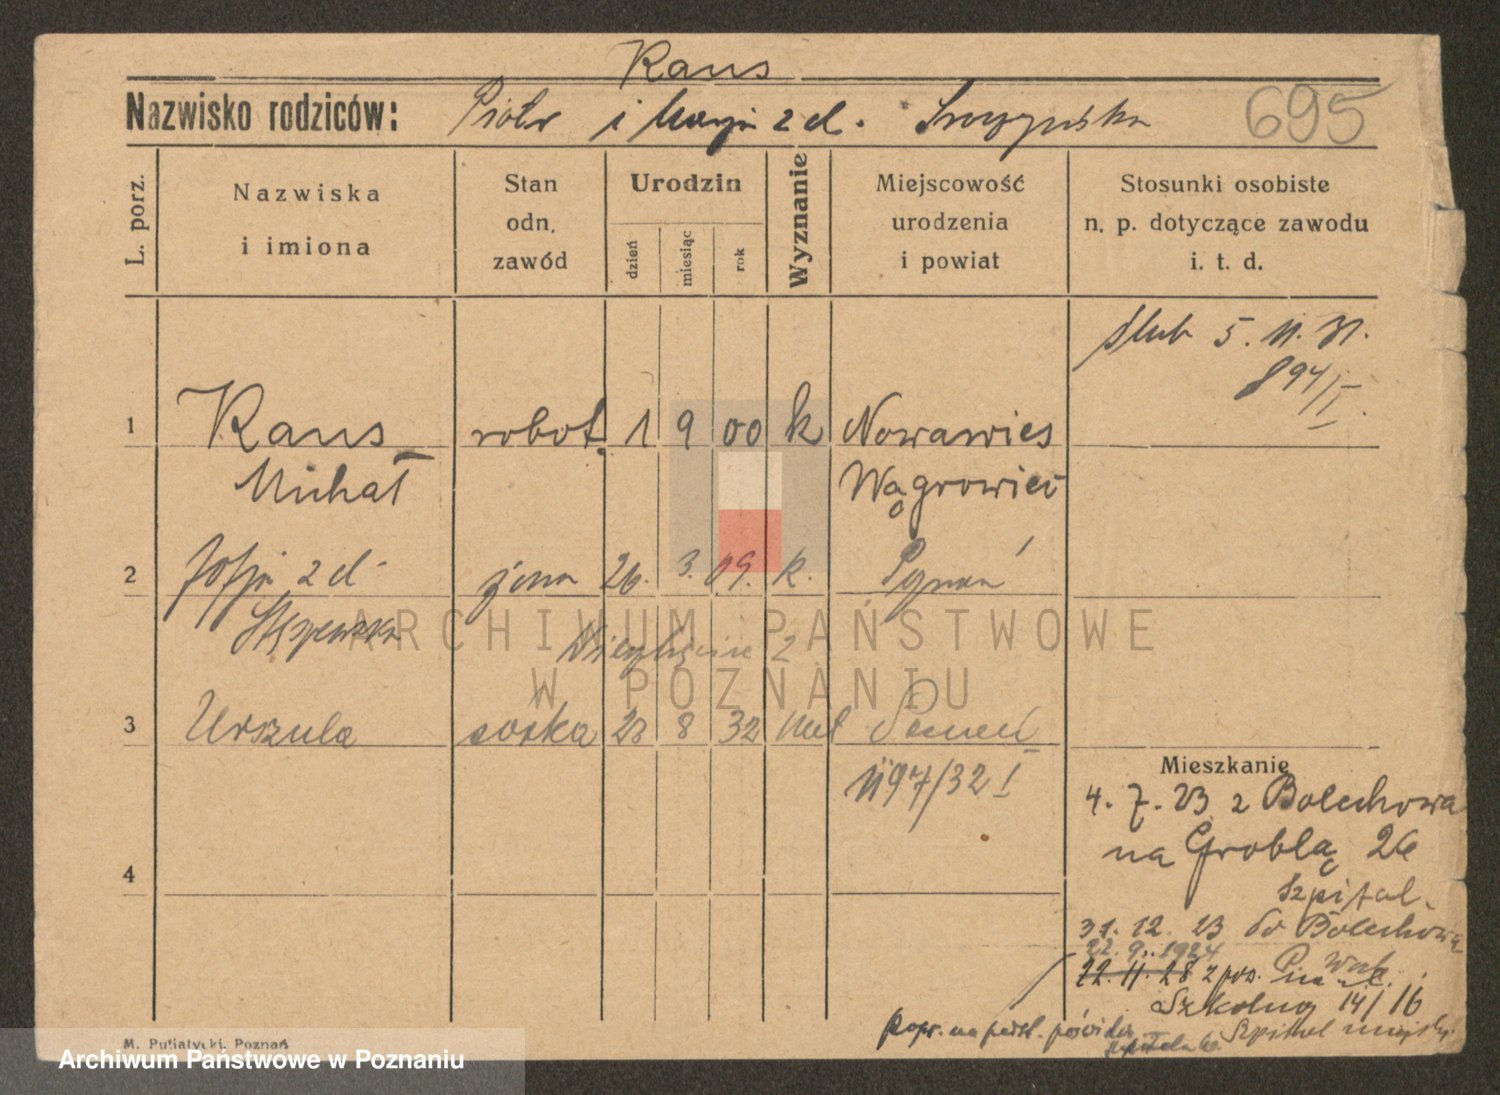 Kaus
Nazwisko rodziców: Piotr i Maryja z d.
695
L. porz.
Nazwiska i imiona
Stan odn. zawód
Urodzin
dzień miesiąc rok
Wyznanie
Miejscowość urodzenia i powiat
Stosunki osobiste n. p. dotyczące zawodu i. t. d.
ślub 5. 11. 31.
894/I.
1 Kaus robot. 1 9 00 k Nowawies
Michał Wągrowiec
2 Zofja z d. żona 26. 3. 09. k. Poznań
Stęszewska
3 Urszula córka 23 8 32 Poznań
1197/32 I
4
Mieszkanie
4. 7. 23 z Bolechowa
na Groblą 26
Szpital.
31. 12. 23 do Bolechowa
22. 9. 1924
22. 11. 28 z poz.
Szkolną 14/16
Szpital miejski
popr. na podst.
M. Putiatycki, Poznań
ARCHIWUM PAŃSTWOWE
W POZNANIU
Archiwum Państwowe w Poznaniu